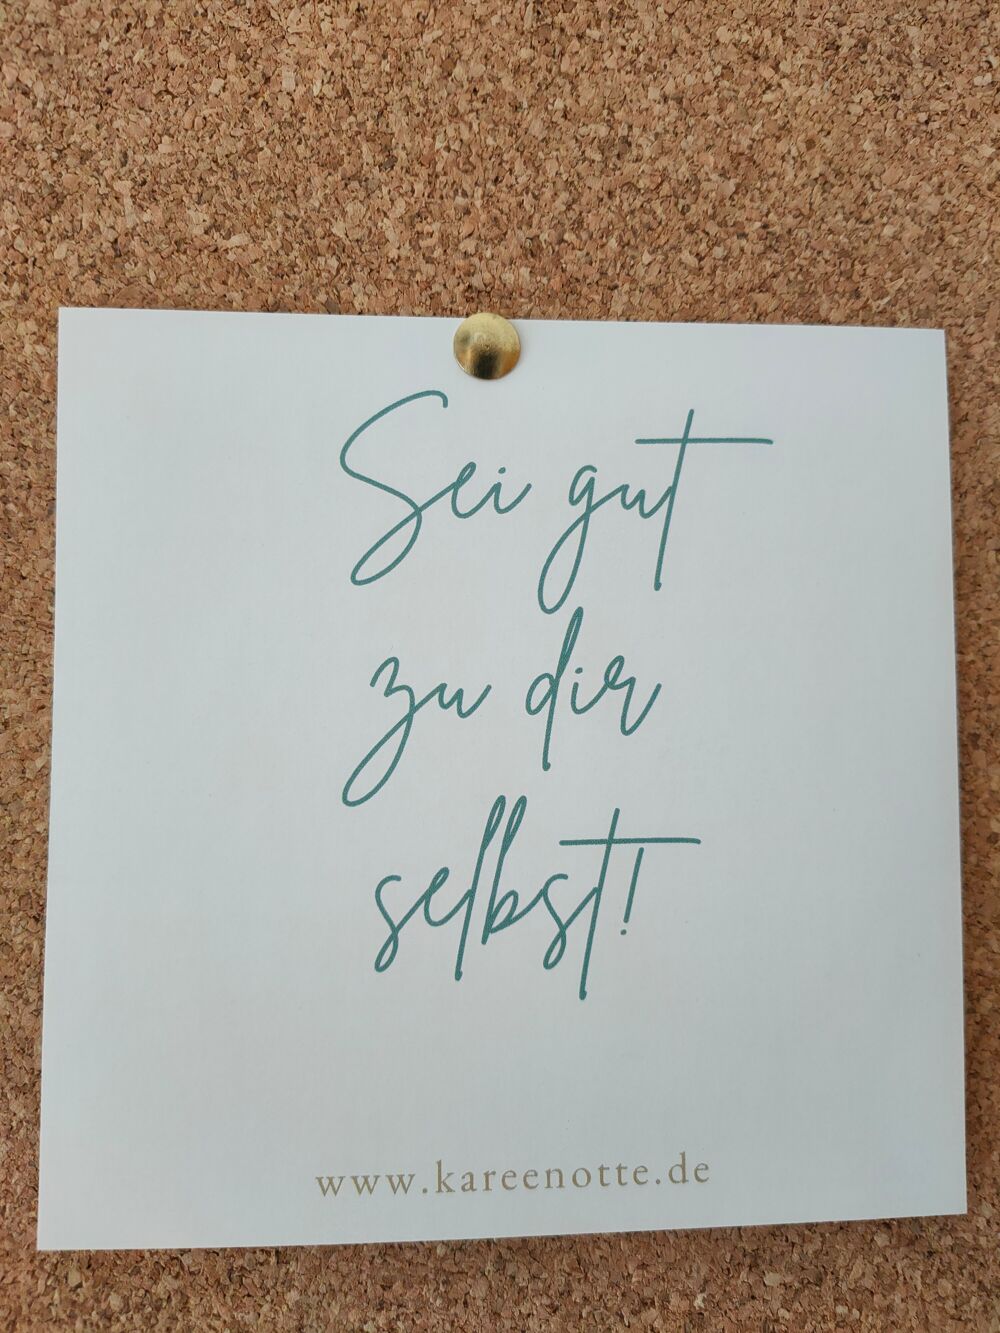 Sei gut
zu dir
selbst!
www.kareenotte.de